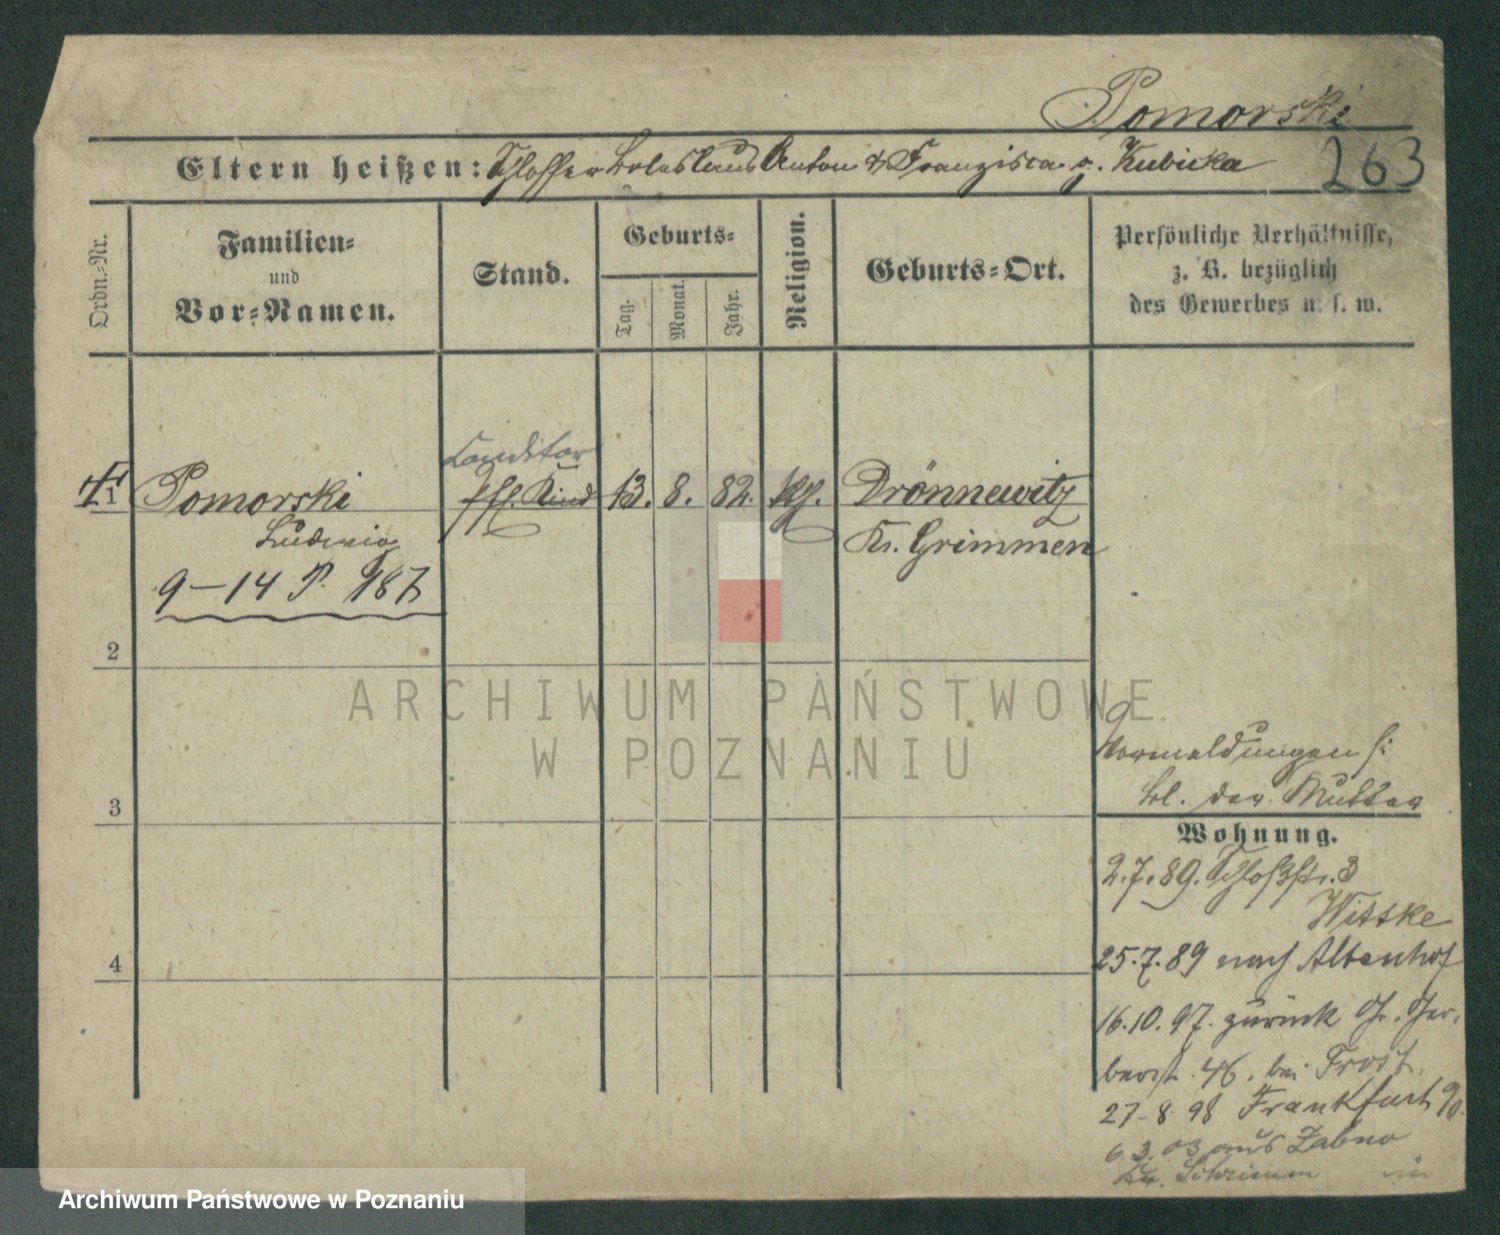 Pomorski
Eltern heißen: Schlosser Boleslaus Anton & Franzisca g. Kubicka
263
Ordn.-Nr.
Familien-
und
Vor-Namen.
Stand.
Geburts-
Tag.
Monat.
Jahr.
Religion.
Geburts-Ort.
Persönliche Verhältnisse,
z. B. bezüglich
des Gewerbes u. s. w.
Conditor
1 Pomorski Kind 13. 8. 82. kth. Drönnewitz
Ludwig Kr. Grimmen
9–14 P. 187
2
3
4
Vormeldungen s:
bl. der Mutter
Wohnung.
2.7.89. Schloßstr. 3
Witske
25.7.89 nach Altenhof
16.10.97. zurück Gr. Ger-
berst. 46. bei Frost.
27.8.98 Frankfurt
6.3.03 aus Zabno
Kr. Schrimm in
ARCHIWUM PAŃSTWOWE
W POZNANIU
Archiwum Państwowe w Poznaniu